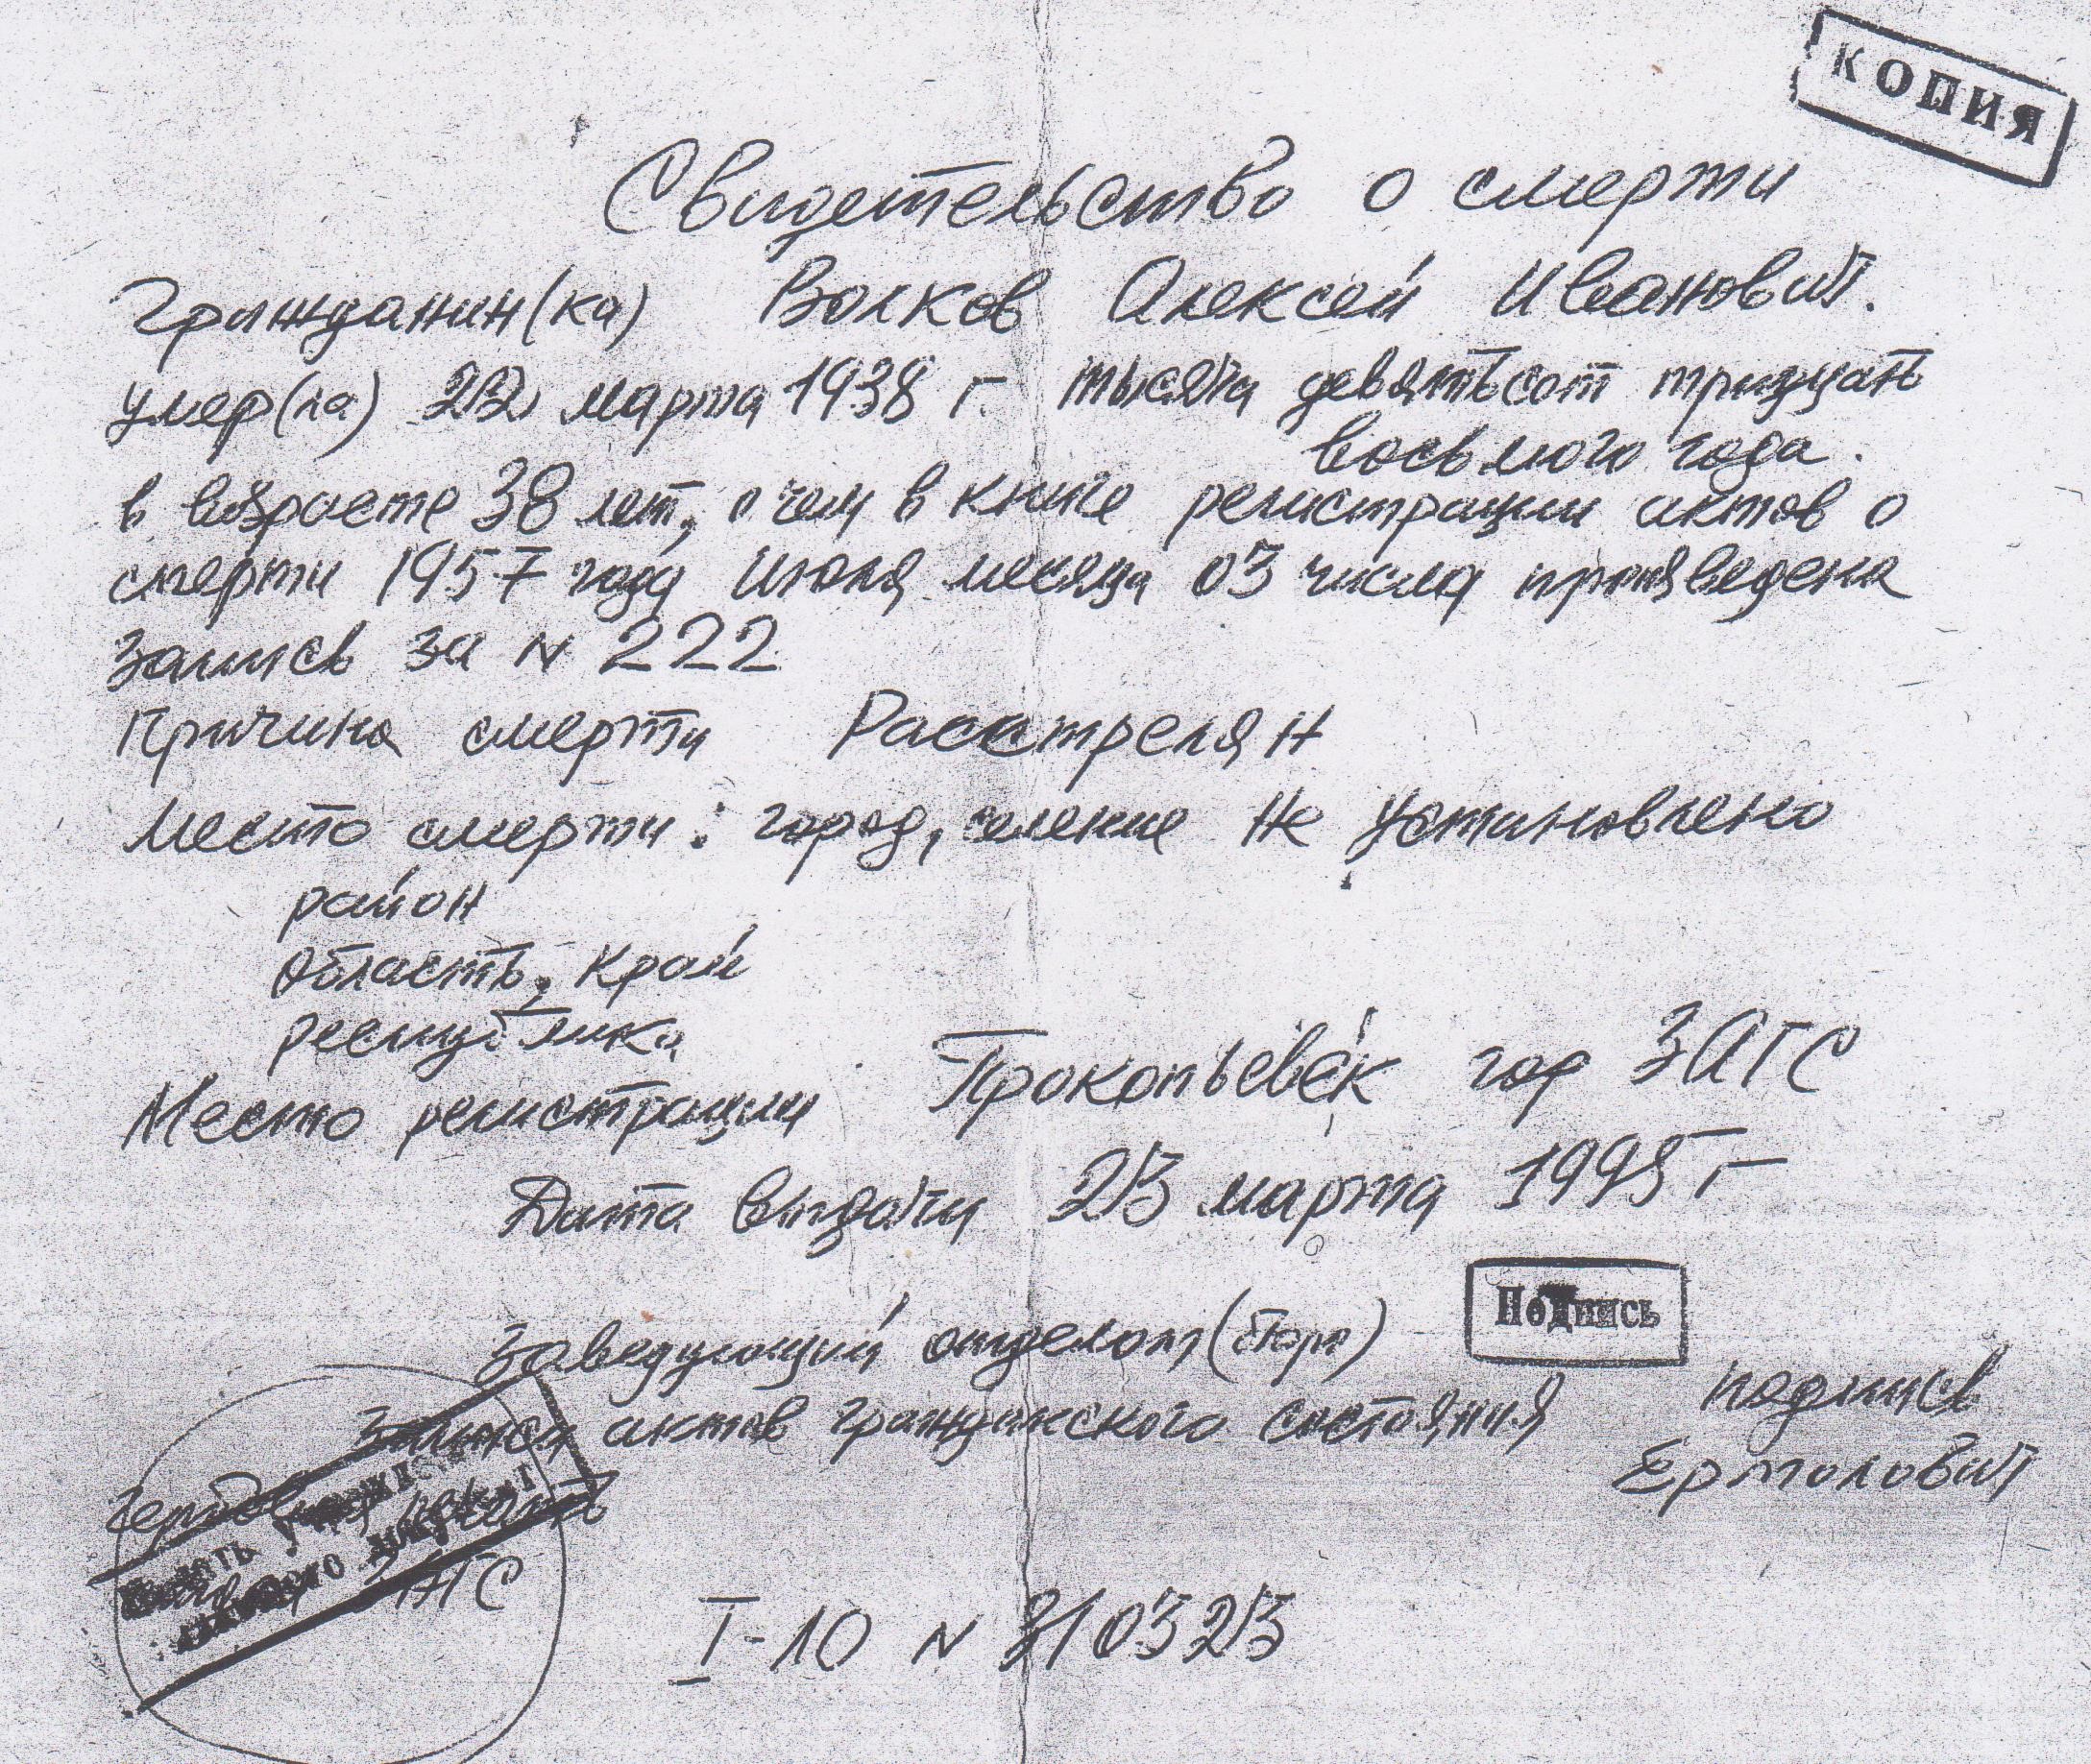 КОПИЯ
Свидетельство о смерти
Гражданин(ка) Волков Алексей Иванович.
умер(ла) 22 марта 1938 г. тысяча девятьсот тридцать
восьмого года.
в возрасте 38 лет, о чем в книге регистрации актов о
смерти 1957 года июля месяца 03 числа произведена
запись за N 222
Причина смерти Расстрелян
Место смерти: город, селение Не установлено
район
область, край
республика
Место регистрации Прокопьевск гор ЗАГС
Дата выдачи 23 марта 1995 г
Подпись
Заведующий отделом (бюро)
записи актов гражданского состояния подпись
Ермолович
Гербовая печать
ЗАГС
I-10 N 310323